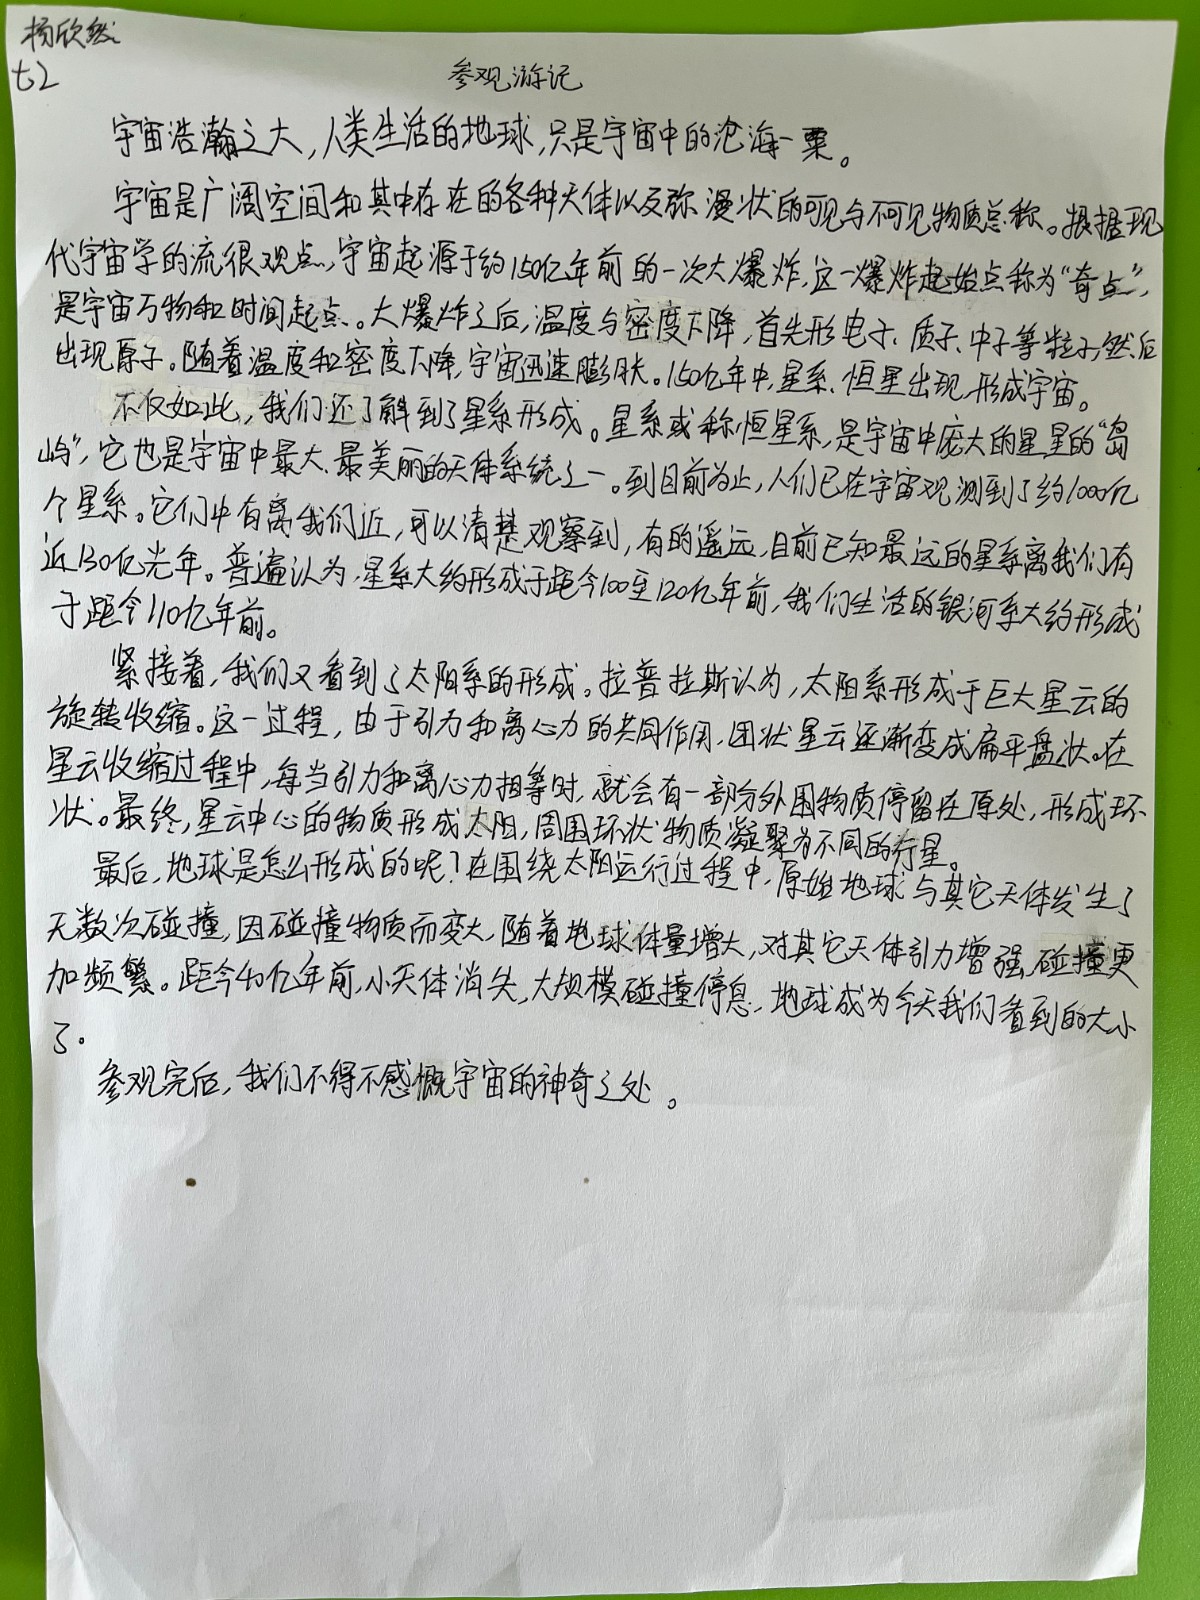 杨欣然
七2
参观游记
宇宙浩瀚之大,人类生活的地球,只是宇宙中的沧海一粟。
宇宙是广阔空间和其中存在的各种天体以及弥漫状的可见与不可见物质总称。根据现
代宇宙学的流很观点,宇宙起源于约150亿年前的一次大爆炸,这一爆炸起始点称为“奇点”,
是宇宙万物和时间起点。大爆炸之后,温度与密度下降,首先形电子、质子、中子等粒子,然后
出现原子。随着温度和密度下降,宇宙迅速膨胀。150亿年中,星系、恒星出现,形成宇宙。
不仅如此,我们还了解到了星系形成。星系或称恒星系,是宇宙中庞大的星星的“岛
屿”,它也是宇宙中最大、最美丽的天体系统之一。到目前为止,人们已在宇宙观测到了约1000亿
个星系。它们中有离我们近,可以清楚观察到,有的遥远,目前已知最远的星系离我们有
近130亿光年。普遍认为,星系大约形成于距今100至120亿年前,我们生活的银河系大约形成
于距今110亿年前。
紧接着,我们又看到了太阳系的形成。拉普拉斯认为,太阳系形成于巨大星云的
旋转收缩。这一过程,由于引力和离心力的共同作用,团状星云逐渐变成扁平盘状。在
星云收缩过程中,每当引力和离心力相等时,就会有一部分外围物质停留在原处,形成环
状。最终,星云中心的物质形成太阳,周围环状物质凝聚为不同的行星。
最后,地球是怎么形成的呢?在围绕太阳运行过程中,原始地球与其它天体发生了
无数次碰撞,因碰撞物质而变大,随着地球体量增大,对其它天体引力增强,碰撞更
加频繁。距今40亿年前,小天体消失,大规模碰撞停息,地球成为今天我们看到的大小
了。
参观完后,我们不得不感慨宇宙的神奇之处。